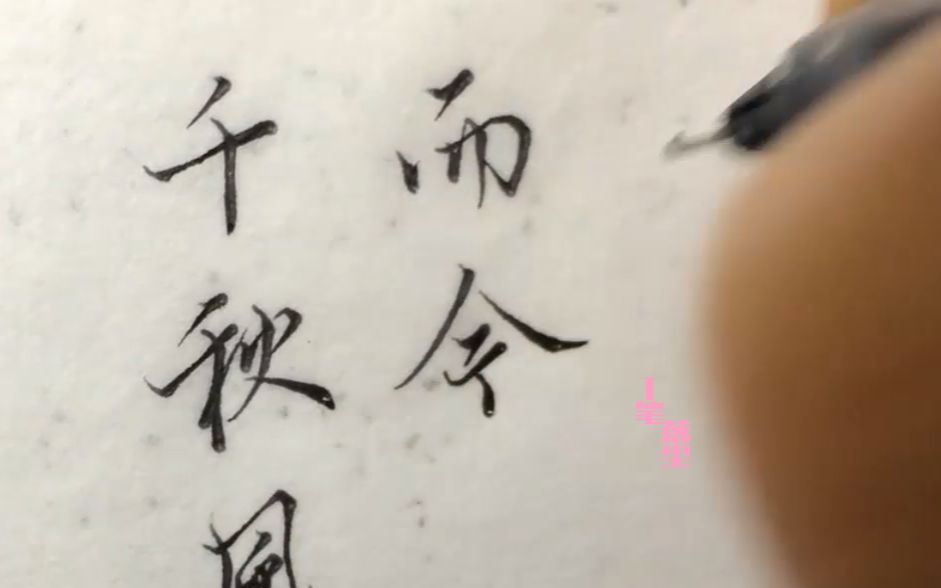 而今
千秋